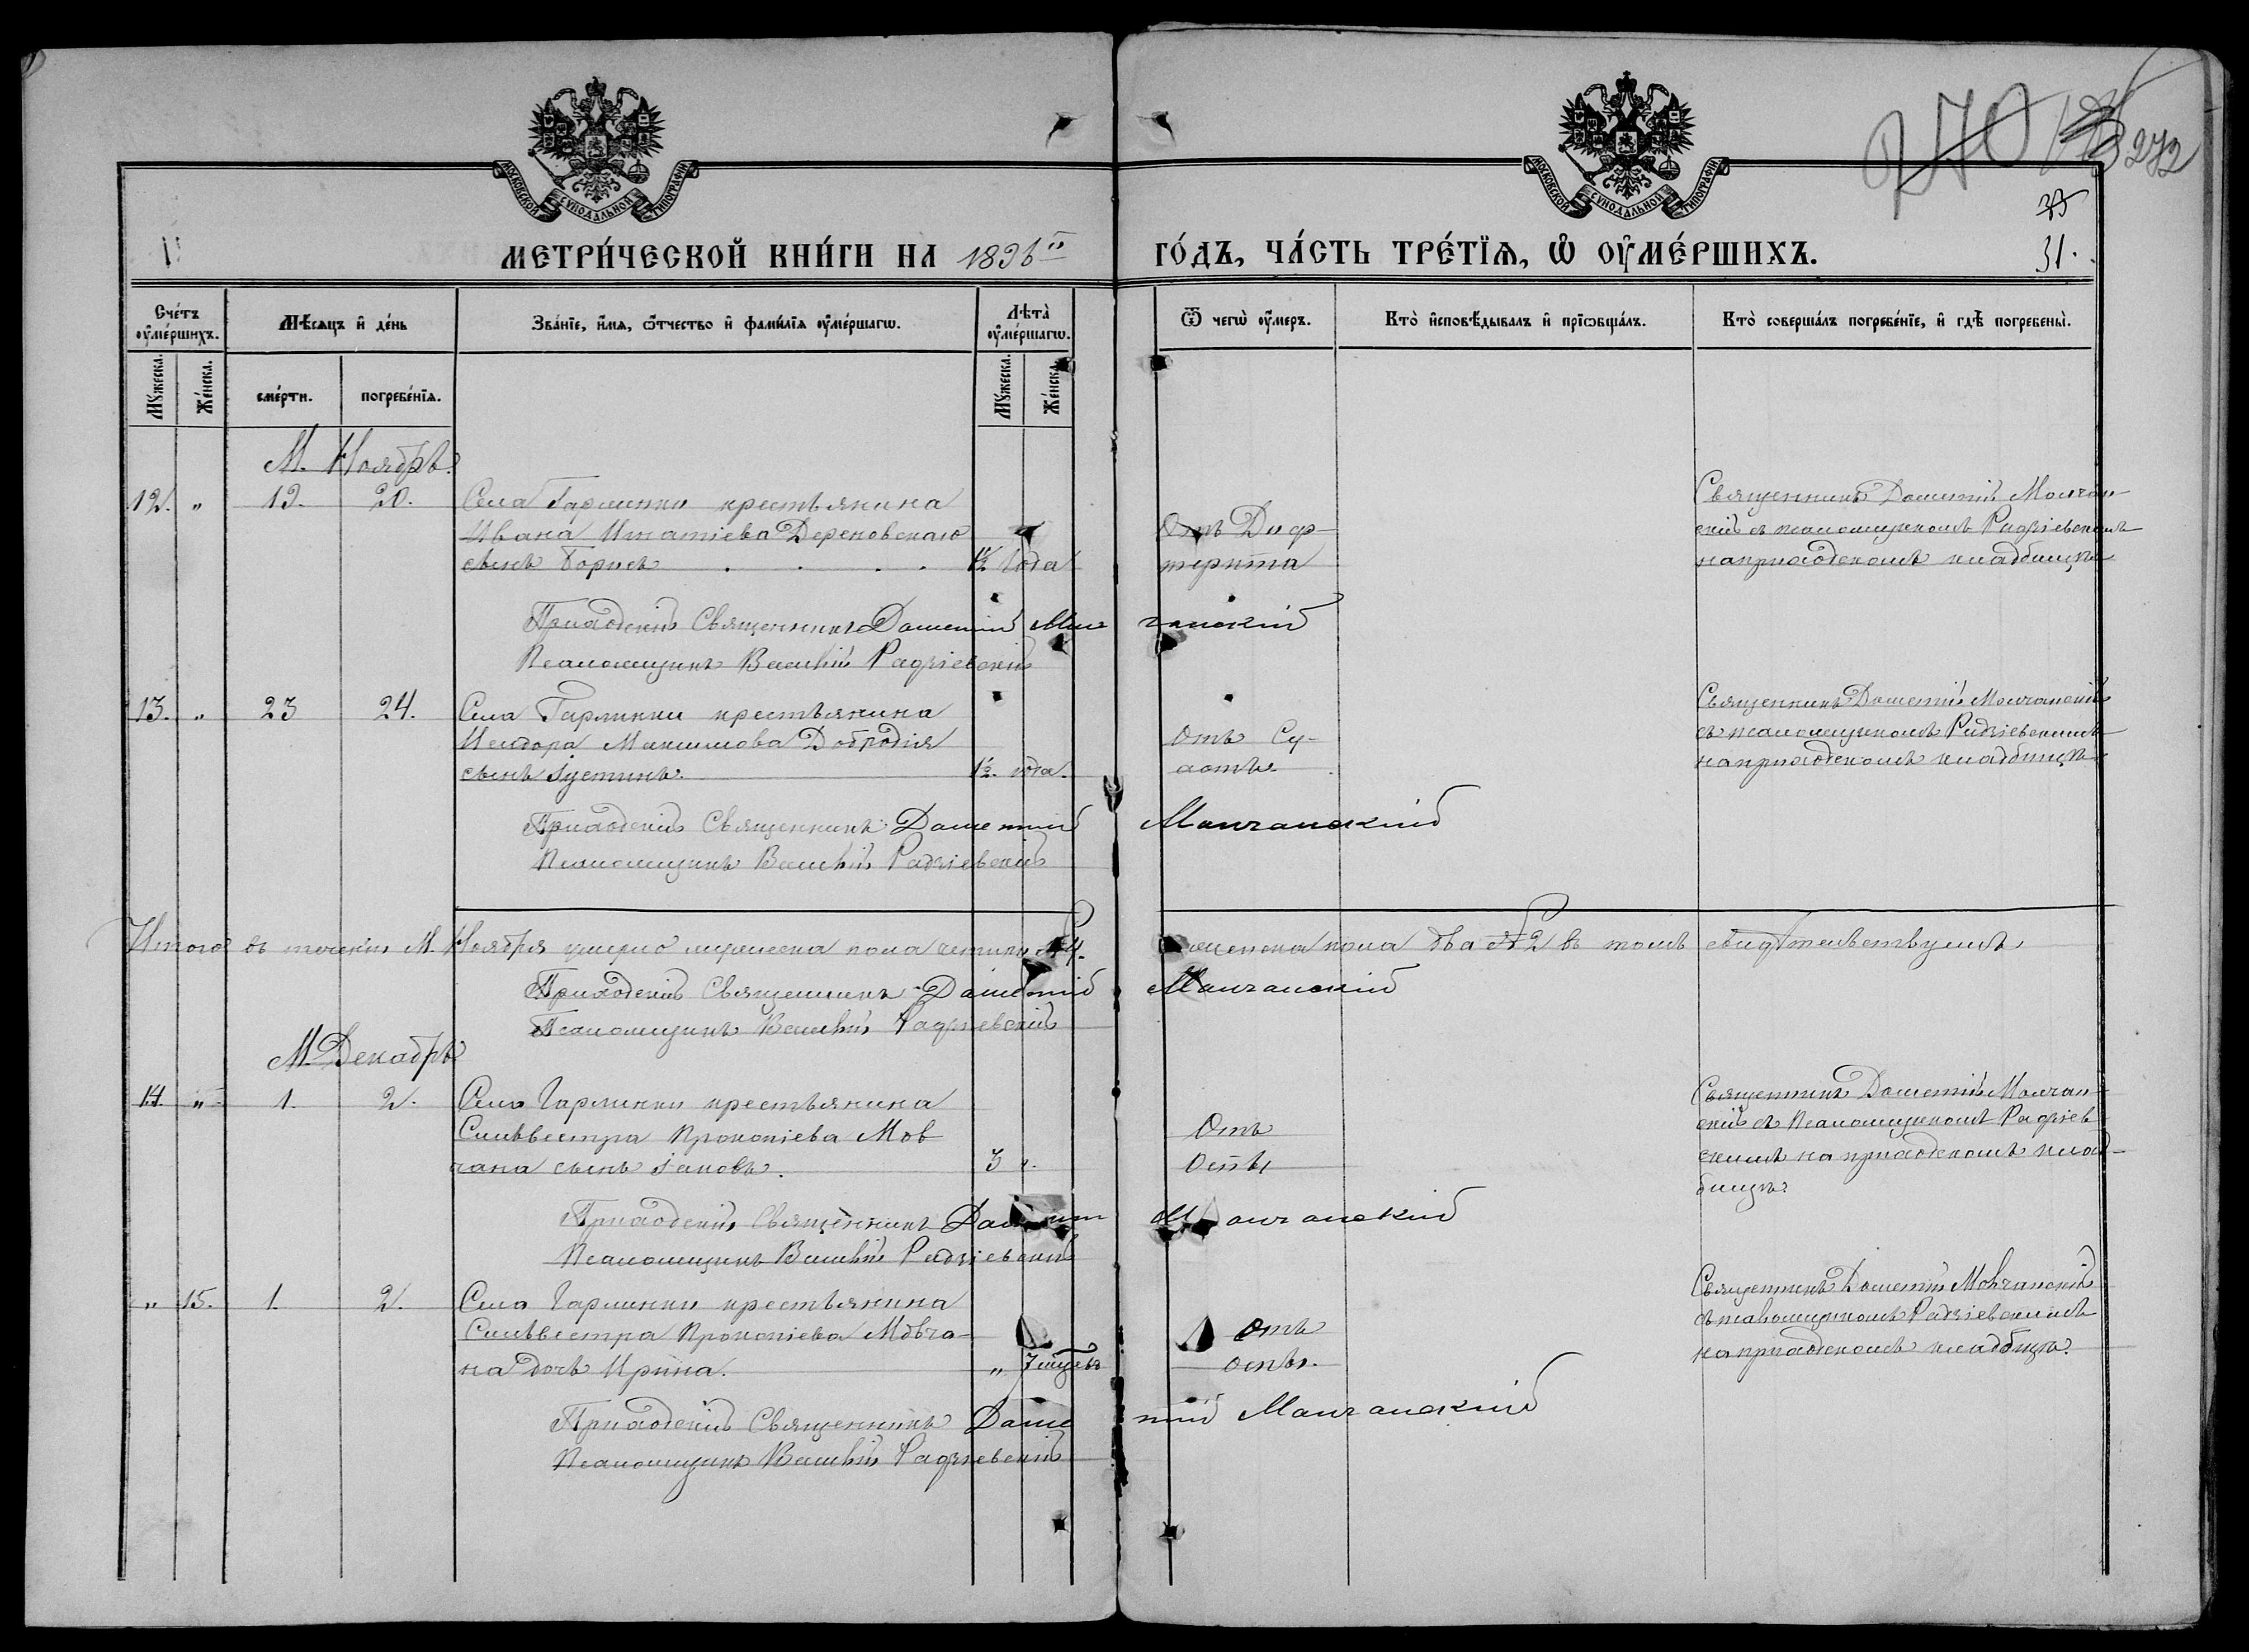 МОСКОВСКОЙ СѴНОДАЛЬНОЙ ТИПОГРАФІИ
МОСКОВСКОЙ СѴНОДАЛЬНОЙ ТИПОГРАФІИ
272
33
31.
МЕТРИ́ЧЕСКОЙ КНИ́ГИ НА 1896й ГО́ДЪ, ЧА́СТЬ ТРЕ́ТЇѦ, Ѽ ОУ҆МЕ́РШИХЪ.
Сче́тъ оу҆ме́ршихъ.
Мѣ́сѧцъ и҆ де́нь
Зва́нїе, и҆́мѧ, ѻ҆́тчество и҆ фами́лїѧ оу҆ме́ршагѡ.
Лѣ́та оу҆ме́ршагѡ.
Ѿ чегѡ̀ оу҆́меръ.
Кто̀ и҆сповѣ́дывалъ и҆ прїѡбща́лъ.
Кто̀ соверша́лъ погребе́нїе, и҆ гдѣ̀ погребены̀.
Му́жеска.
Же́нска.
сме́рти.
погребе́нїѧ.
Му́жеска.
Же́нска.
М. Ноябрь.
12. " 19. 20. Села Гарминки крестьянина
Ивана Игнатіева Дереновскаго
сынъ Борисъ . . . . 1½ года
Отъ Диф-
терита
Священникъ Дометій Молчан-
скій съ псаломщикомъ Радзіевскимъ
на приходскомъ кладбищѣ
Приходскій Священникъ Дометій Молчанскій
Псаломщикъ Василій Радзіевскій
13. " 23 24. Села Гарминки крестьянина
Исидора Максимова Добродія
сынъ Іустинъ. 1½. года.
Отъ Су-
хотъ.
Священникъ Дометій Молчанскій
съ псаломщикомъ Радзіевскимъ
на приходскомъ кладбищѣ
Приходскій Священникъ Дометій Молчанскій
Псаломщикъ Василій Радзіевскій
Итого въ теченіи М. Ноября умерло мужеска пола четыри № 4. женска пола два № 2 въ томъ свидѣтельствуемъ
Приходскій Священникъ Дометій Молчанскій
Псаломщикъ Василій Радзіевскій
М. Декабрь
14. " 1. 2. Села Гарминки крестьянина
Сильвестра Прокопіева Мов
чана сынъ Іаковъ. 3 г.
Отъ
Оспы
Священникъ Дометій Молчан-
скій съ Псаломщикомъ Радзіев
скимъ на приходскомъ клад-
бищѣ
Приходскій Священникъ Дометій Молчанскій
Псаломщикъ Василій Радзіевскій
" 15. 1. 2. Села Гарминки крестьянина
Сильвестра Прокопіева Мовча-
на дочь Ирина. " 7 мѣсяц.
Отъ
оспы.
Священникъ Дометій Мовчанскій
съ псаломщикомъ Радзіевскимъ
на приходскомъ кладбищѣ.
Приходскій Священникъ Дометій Молчанскій
Псаломщикъ Василій Радзіевскій